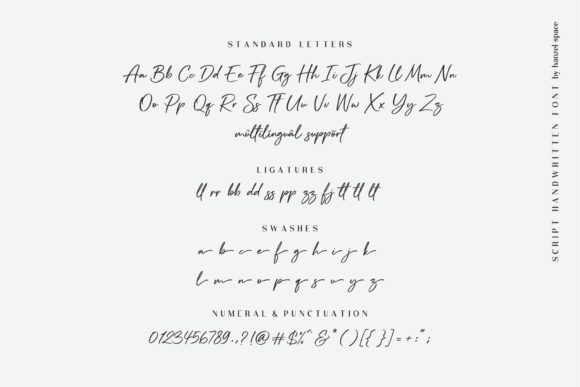 STANDARD LETTERS
Aa Bb Cc Dd Ee Ff Gg Hh Ii Jj Kk Ll Mm Nn
Oo Pp Qq Rr Ss Tt Uu Vv Ww Xx Yy Zz
mûltilinguãl suppört
LIGATURES
ll rr bb dd ss pp zz fj tt tl lt
SWASHES
a b c e f g h i j k
l m n o p q s u y z
NUMERAL & PUNCTUATION
0123456789.,?!@#$%^&*()[{}]=+:";
SCRIPT HANDWRITTEN FONT by hanzel space